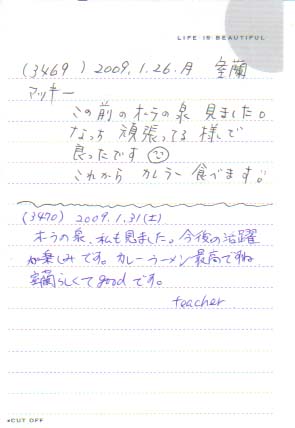 LIFE IS BEAUTIFUL
(3469) 2009.1.26.月 室蘭
アッキー
この前のオーラの泉 見ました。
なっち 頑張ってる 様しで
良ったです
これから カレラー 食べます。
(3470) 2009.1.31(土)
オーラの泉、私も見ました。今後の活躍
が楽しみです。カレーラーメン最高ですね
室蘭らしくてgoodです。
teacher
CUT OFF